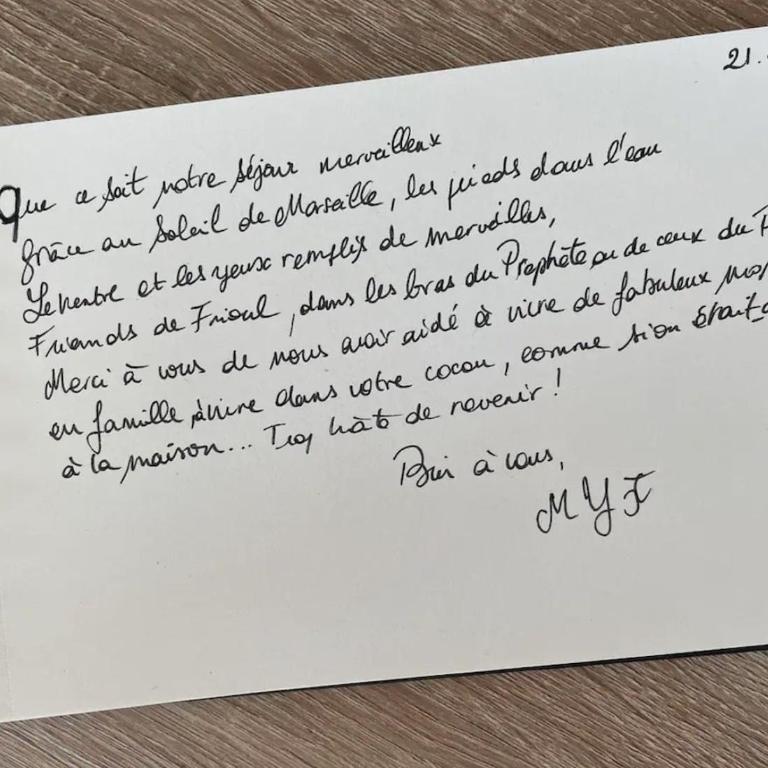 21.
Que ce soit notre séjour merveilleux
grâce au Soleil de Marseille, les pieds dans l'eau
Le ventre et les yeux remplis de merveilles,
Friands de Frioul, dans les bras du Prophète ou de ceux du
Merci à vous de nous avoir aidé à vivre de fabuleux
en famille, à vivre dans votre cocon, comme si on était
à la maison... Trop hâte de revenir !
à vous,
M Y F